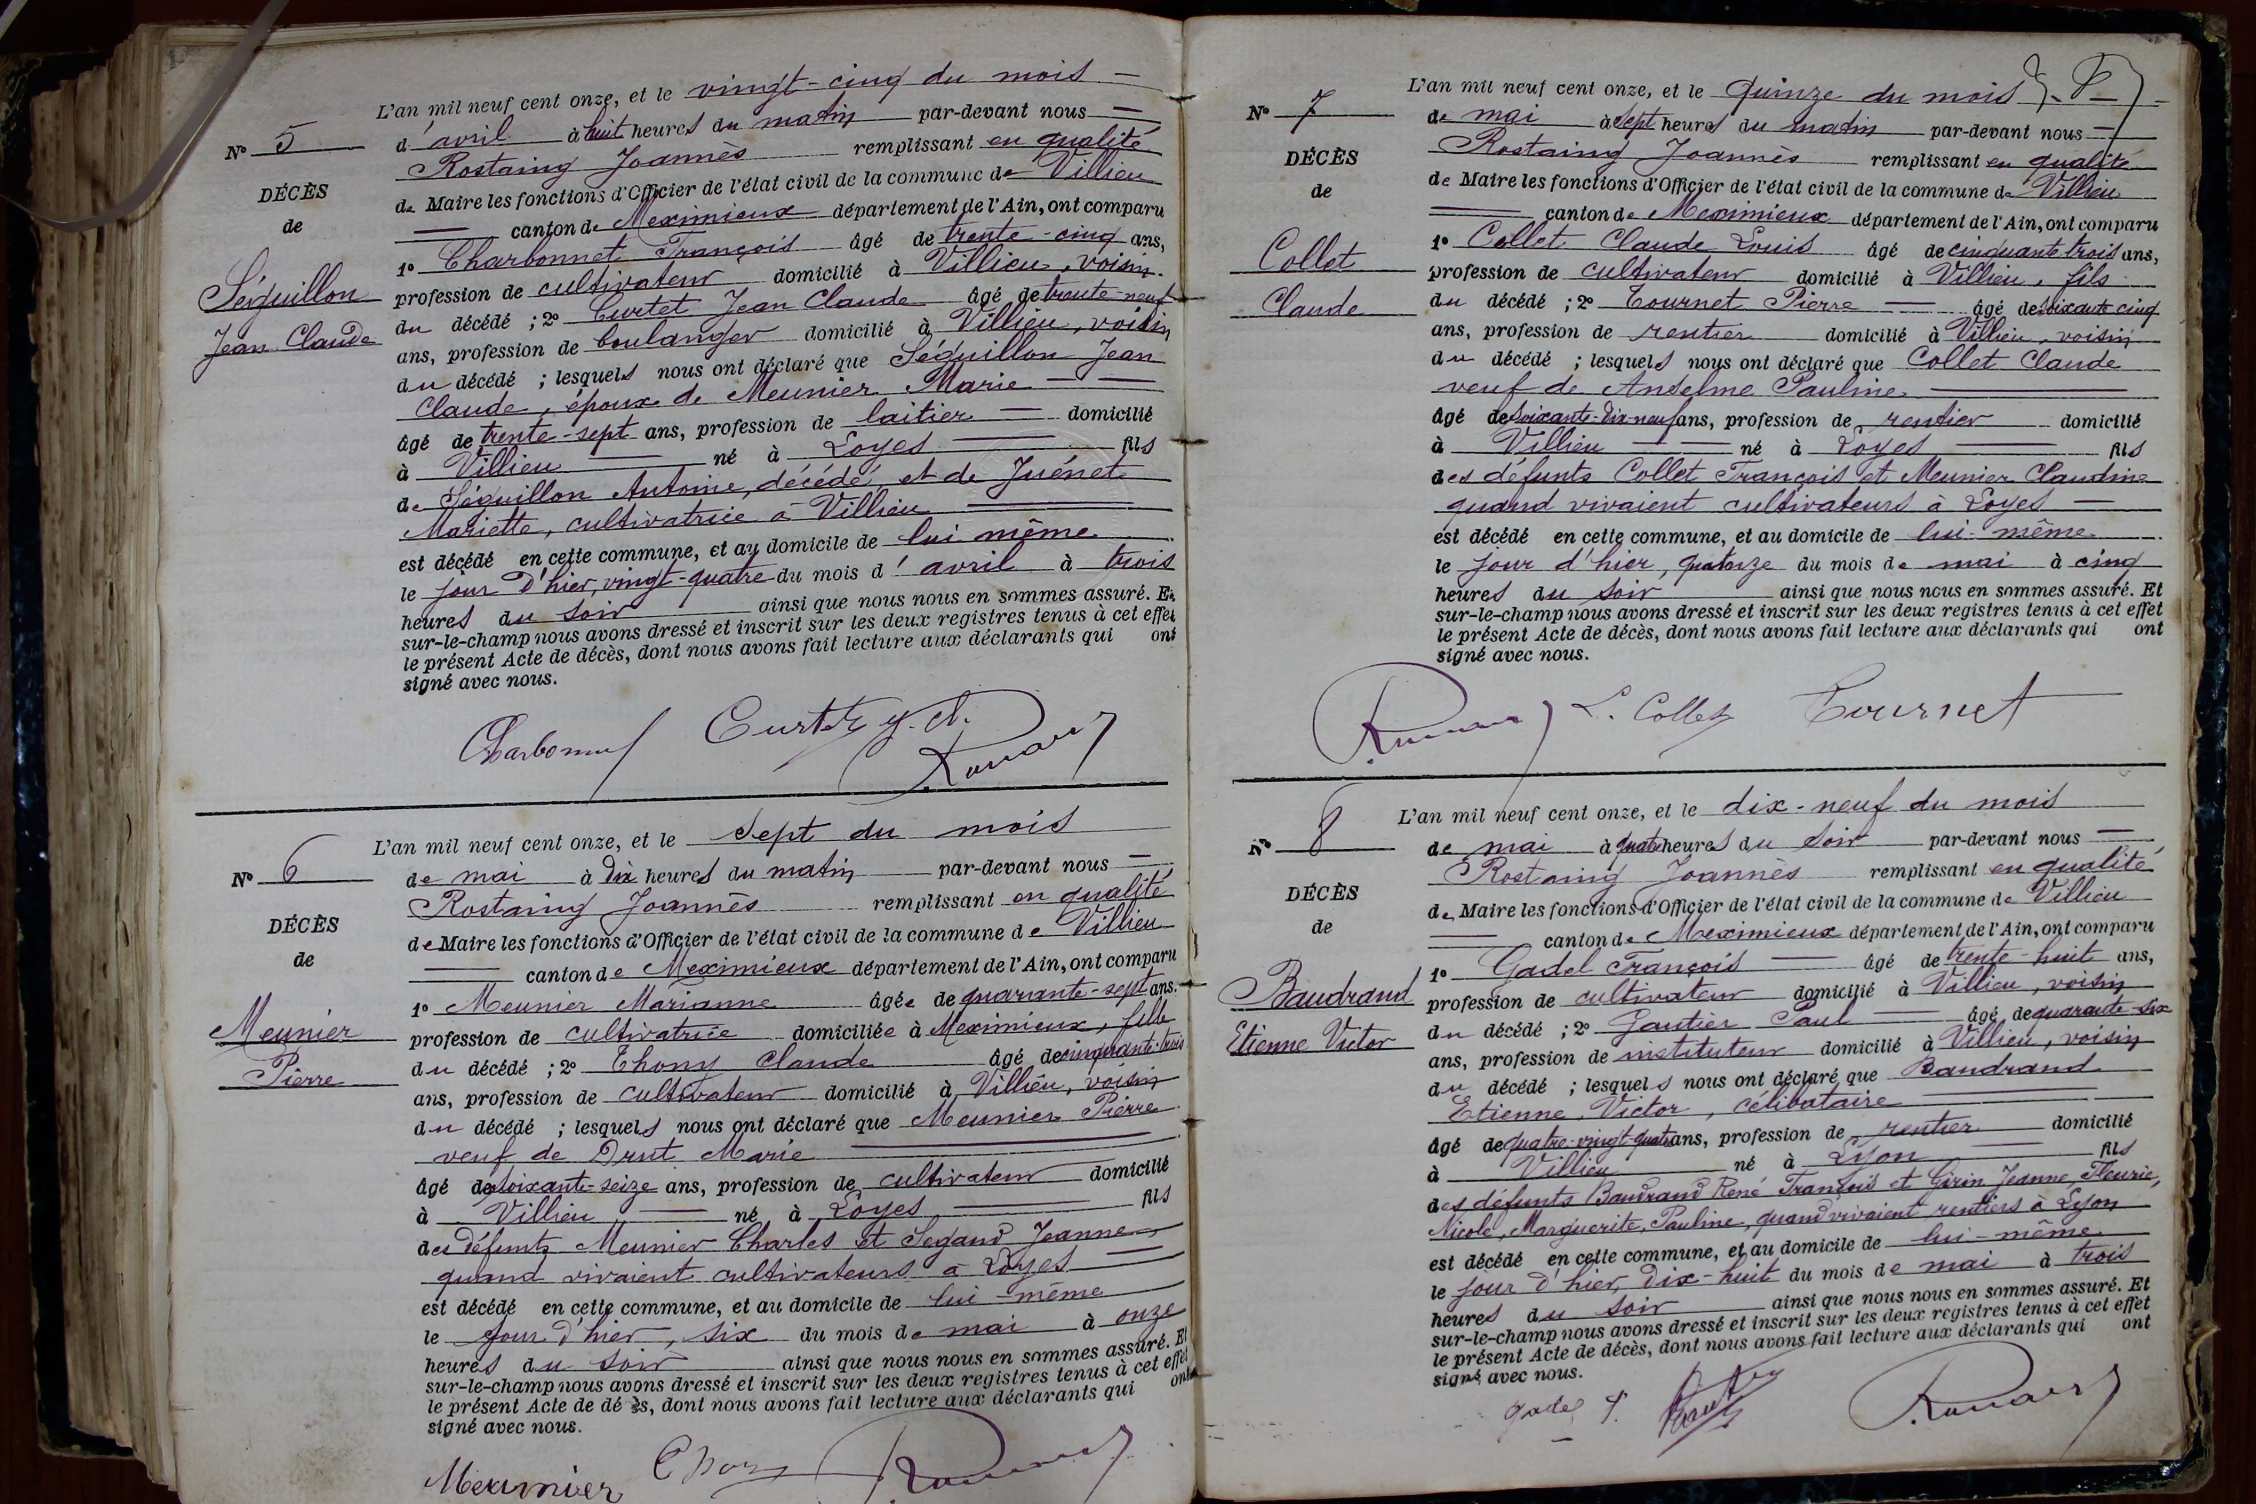 L'an mil neuf cent onze, et le vingt-cinq du mois
d'avril à huit heures du matin par-devant nous
Rostaing Joannès remplissant en qualité
de Maire les fonctions d'Officier de l'état civil de la commune de Villieu
canton de Meximieux département de l'Ain, ont comparu
1° Charbonnet François âgé de trente-cinq ans,
profession de cultivateur domicilié à Villieu, voisin
du décédé ; 2° Curtet Jean Claude âgé de trente-neuf
ans, profession de boulanger domicilié à Villieu, voisin
du décédé ; lesquels nous ont déclaré que Séguillon Jean
Claude, époux de Meunier Marie
âgé de trente-sept ans, profession de laitier domicilié
à Villieu né à Loyes fils
de Séguillon Antoine, décédé, et de Juénet
Mariette, cultivatrice à Villieu
est décédé en cette commune, et au domicile de lui même
le jour d'hier, vingt-quatre du mois d'avril à trois
heures du soir ainsi que nous nous en sommes assuré. Et
sur-le-champ nous avons dressé et inscrit sur les deux registres tenus à cet effet
le présent Acte de décès, dont nous avons fait lecture aux déclarants qui ont
signé avec nous.
N° 5
DÉCÈS
de
Séguillon
Jean Claude
Charbonnet Curtet J. Cl.
L'an mil neuf cent onze, et le sept du mois
de mai à dix heures du matin par-devant nous
Rostaing Joannès remplissant en qualité
de Maire les fonctions d'Officier de l'état civil de la commune de Villieu
canton de Meximieux département de l'Ain, ont comparu
1° Meunier Marianne âgée de quarante-sept ans.
profession de cultivatrice domiciliée à Meximieux, fille
du décédé ; 2° Thony Claude âgé de cinquante-trois
ans, profession de cultivateur domicilié à Villieu, voisin
du décédé ; lesquels nous ont déclaré que Meunier Pierre
veuf de Drut Marie
âgé de soixante-seize ans, profession de cultivateur domicilié
à Villieu né à Loyes fils
des défunts Meunier Charles et Segaud Jeanne
quand vivaient cultivateurs à Loyes
est décédé en cette commune, et au domicile de lui-même
le jour d'hier, six du mois de mai à onze
heures du soir ainsi que nous nous en sommes assuré. Et
sur-le-champ nous avons dressé et inscrit sur les deux registres tenus à cet effet
le présent Acte de décès, dont nous avons fait lecture aux déclarants qui ont
signé avec nous.
N° 6
DÉCÈS
de
Meunier
Pierre
Meunier Thony
L'an mil neuf cent onze, et le quinze du mois
de mai à sept heures du matin par-devant nous
Rostaing Joannès remplissant en qualité
de Maire les fonctions d'Officier de l'état civil de la commune de Villieu
canton de Meximieux département de l'Ain, ont comparu
1° Collet Claude Louis âgé de cinquante trois ans,
profession de cultivateur domicilié à Villieu, fils
du décédé ; 2° Tournet Pierre âgé de soixante cinq
ans, profession de rentier domicilié à Villieu, voisin
du décédé ; lesquels nous ont déclaré que Collet Claude
veuf de Anselme Pauline
âgé de soixante-dix-neuf ans, profession de rentier domicilié
à Villieu né à Loyes fils
des défunts Collet François et Meunier Claudine
quand vivaient cultivateurs à Loyes
est décédé en cette commune, et au domicile de lui-même
le jour d'hier, quatorze du mois de mai à cinq
heures du soir ainsi que nous nous en sommes assuré. Et
sur-le-champ nous avons dressé et inscrit sur les deux registres tenus à cet effet
le présent Acte de décès, dont nous avons fait lecture aux déclarants qui ont
signé avec nous.
N° 7
DÉCÈS
de
Collet
Claude
L. Collet Tournet
L'an mil neuf cent onze, et le dix-neuf du mois
de mai à quatre heures du soir par-devant nous
Rostaing Joannès remplissant en qualité
de Maire les fonctions d'Officier de l'état civil de la commune de Villieu
canton de Meximieux département de l'Ain, ont comparu
1° Gadel François âgé de trente-huit ans,
profession de cultivateur domicilié à Villieu, voisin
du décédé ; 2° Gautier Paul âgé de quarante-six
ans, profession de instituteur domicilié à Villieu, voisin
du décédé ; lesquels nous ont déclaré que Baudrand
Etienne Victor, célibataire
âgé de quatre-vingt-quatre ans, profession de rentier domicilié
à Villieu né à Lyon fils
des défunts Baudrand René François et Girin Jeanne, Fleurie,
Nicole, Marguerite, Pauline, quand vivaient rentiers à Lyon
est décédé en cette commune, et au domicile de lui-même
le jour d'hier, dix-huit du mois de mai à trois
heures du soir ainsi que nous nous en sommes assuré. Et
sur-le-champ nous avons dressé et inscrit sur les deux registres tenus à cet effet
le présent Acte de décès, dont nous avons fait lecture aux déclarants qui ont
signé avec nous.
N° 8
DÉCÈS
de
Baudrand
Etienne Victor
Gadel f.